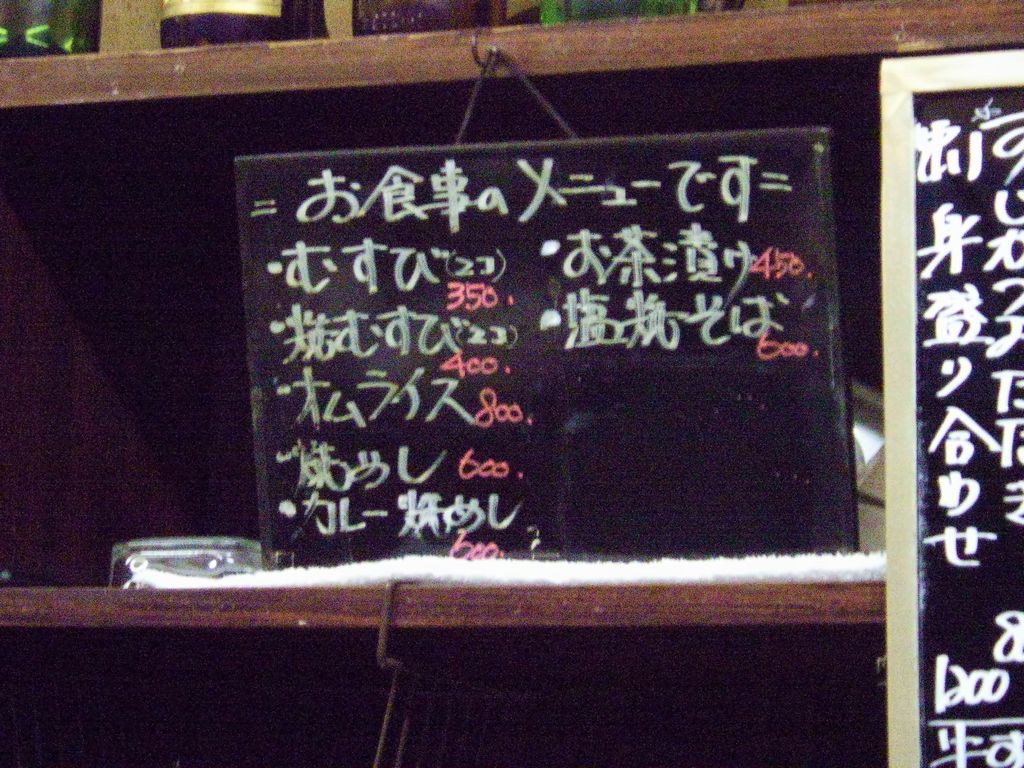 =お食事のメニューです=
・むすび(2コ)
350.
・焼むすび(2コ)
400.
・オムライス 800.
・焼めし 600.
・カレー焼めし
・お茶漬け 450.
・塩焼そば
600.
身盛り合わせ
1200